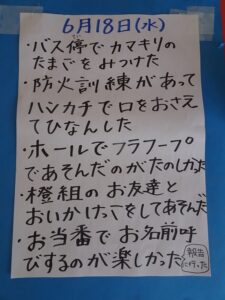 6月18日(水)
・バス停でカマキリの
たまごをみつけた
・防火訓練があって
ハンカチで口をおさえ
てひなんした
・ホールでフラフープ
であそんだのがたのしかった
・橙組のお友達と
おいかけっこをしてあそんだ
・お当番でお名前呼
びするのが楽しかった
報告
に行った